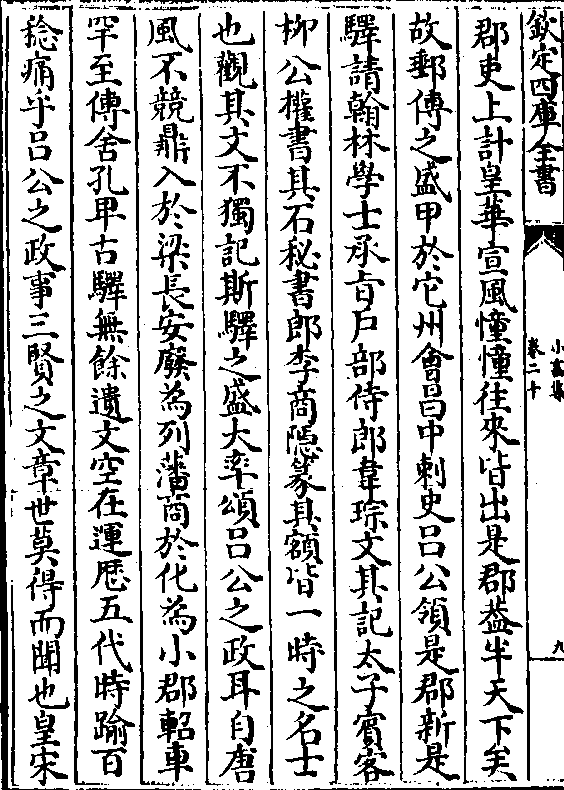 欽定四庫全書
小畜集
卷二十
九
郡吏上計皇華宣風憧憧往來皆出是郡蓋半天下矣
故郵傳之盛甲於它州會昌中刺史吕公領是郡新是
驛請翰林學士承旨户部侍郎韋琮文其記太子賓客
柳公權書其石秘書郎李商隱篆其額皆一時之名士
也觀其文不獨記斯驛之盛大率頌吕公之政耳自唐
風不競鼎入於梁長安廢為列藩商於化為小郡軺車
罕至傳舍孔卑古驛無餘遺文空在運歴五代時踰百
稔痛乎吕公之政事三賢之文章世莫得而聞也皇宋